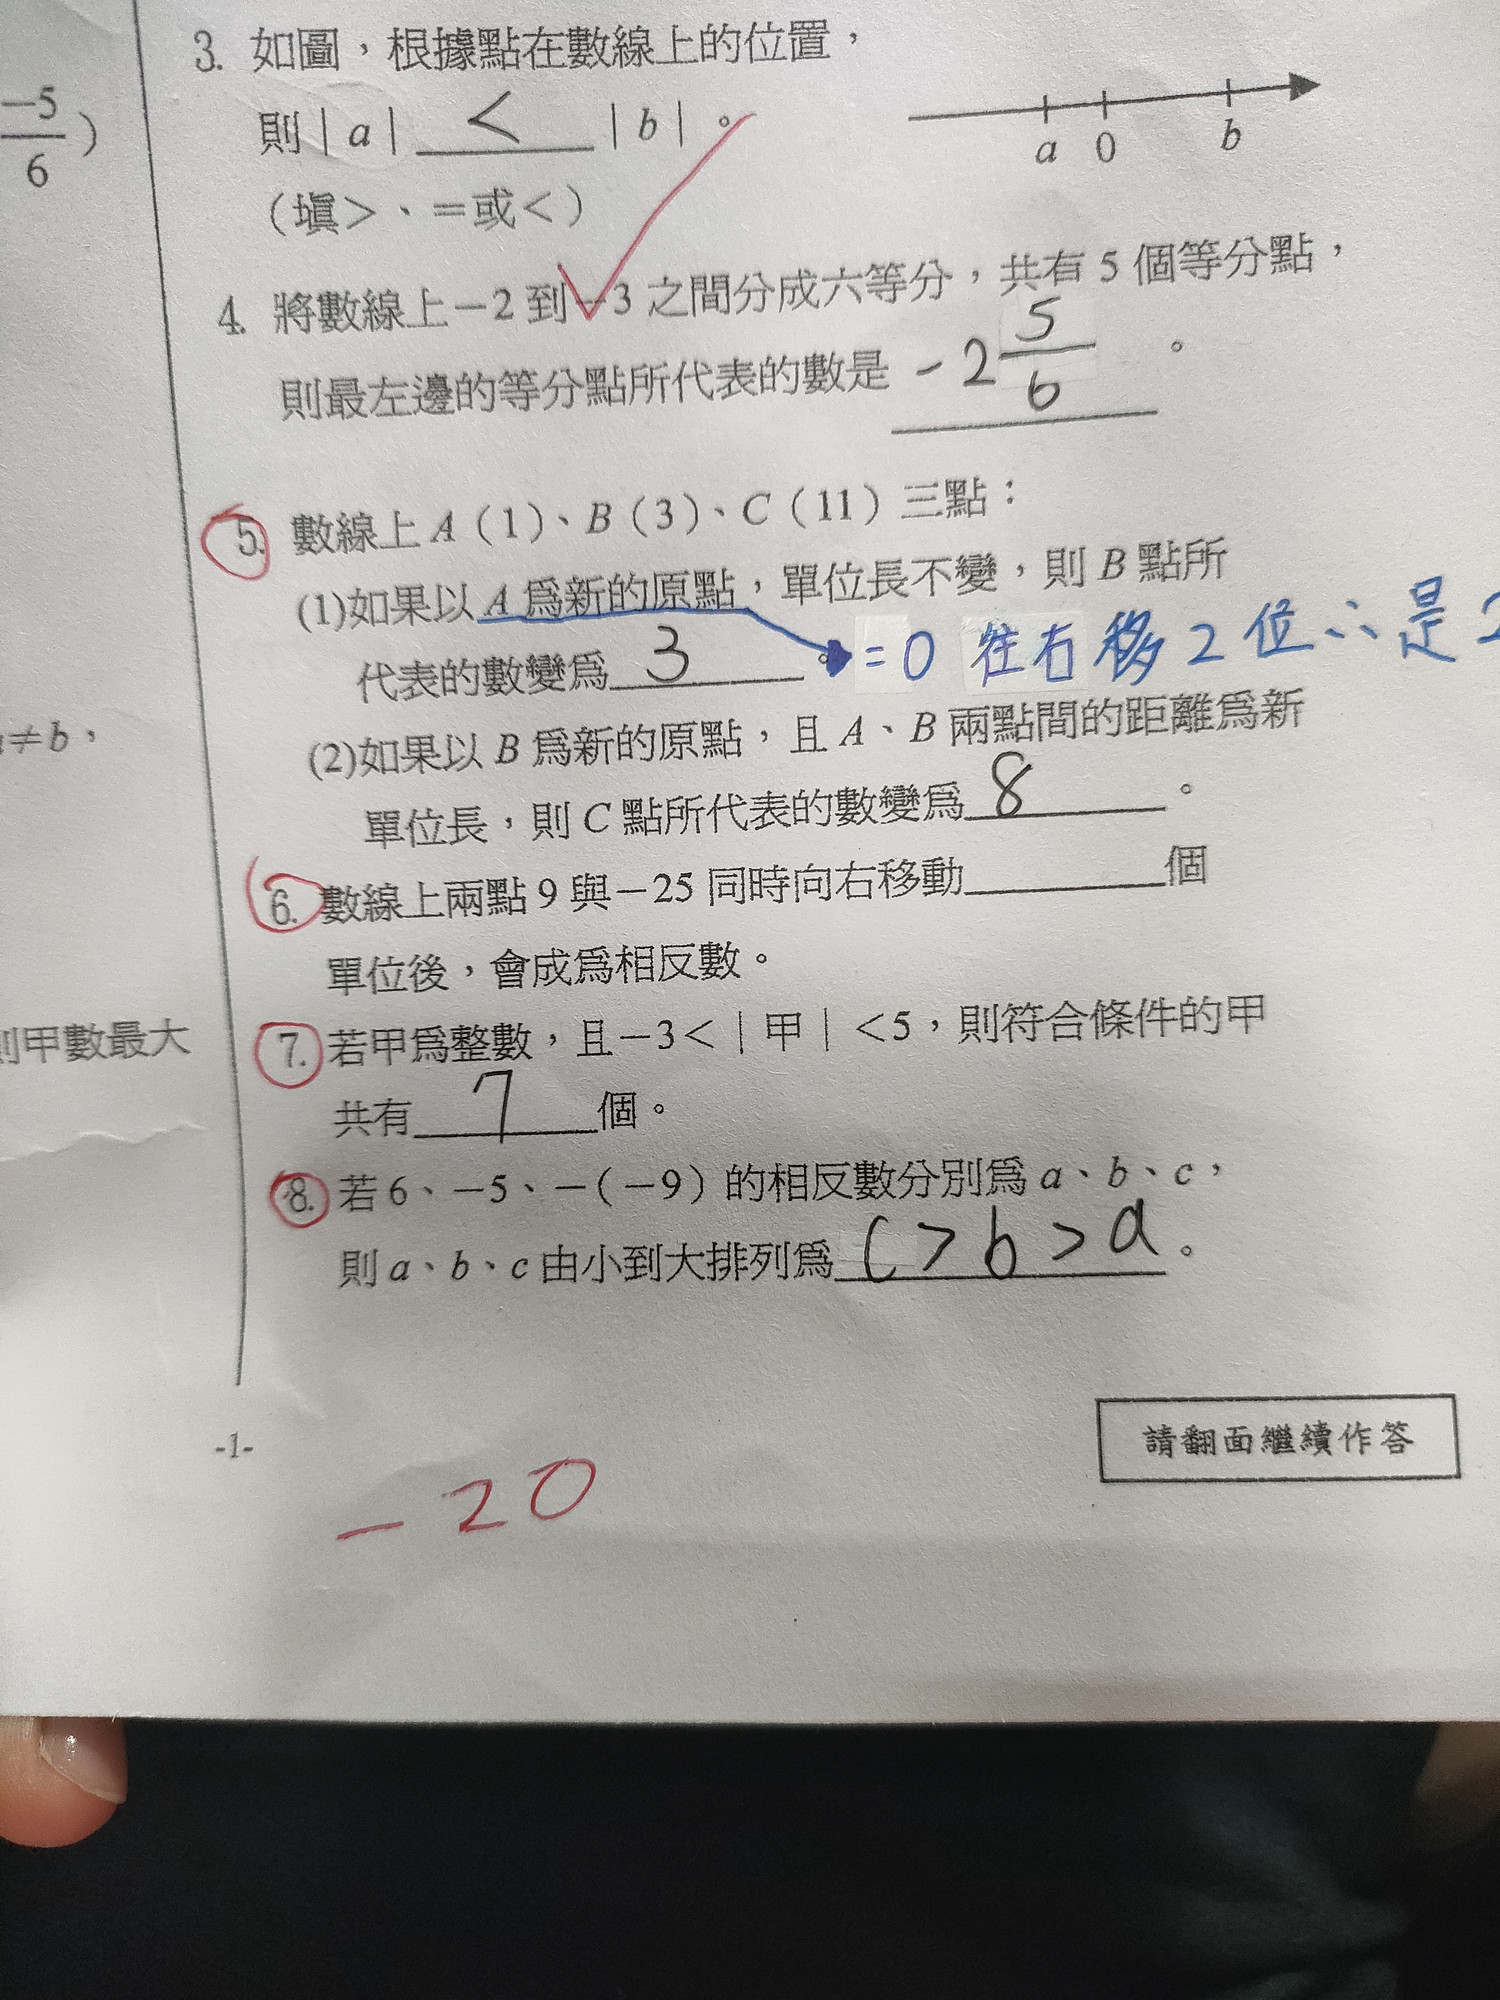 -5
6 )
a≠b，
則甲數最大
3. 如圖，根據點在數線上的位置，
則 | a | < | b | 。
（填>、=或<）
a 0 b
4. 將數線上-2到-3之間分成六等分，共有5個等分點，
則最左邊的等分點所代表的數是 -2 5/6 。
5. 數線上A（1）、B（3）、C（11）三點：
(1)如果以A為新的原點，單位長不變，則B點所
代表的數變為 3 。 =0 往右移2位∴是2
(2)如果以B為新的原點，且A、B兩點間的距離為新
單位長，則C點所代表的數變為 8 。
6. 數線上兩點9與-25同時向右移動______個
單位後，會成為相反數。
7. 若甲為整數，且-3<|甲|<5，則符合條件的甲
共有 7 個。
8. 若6、-5、-(-9)的相反數分別為a、b、c，
則a、b、c由小到大排列為 c>b>a 。
-1-
請翻面繼續作答
-20